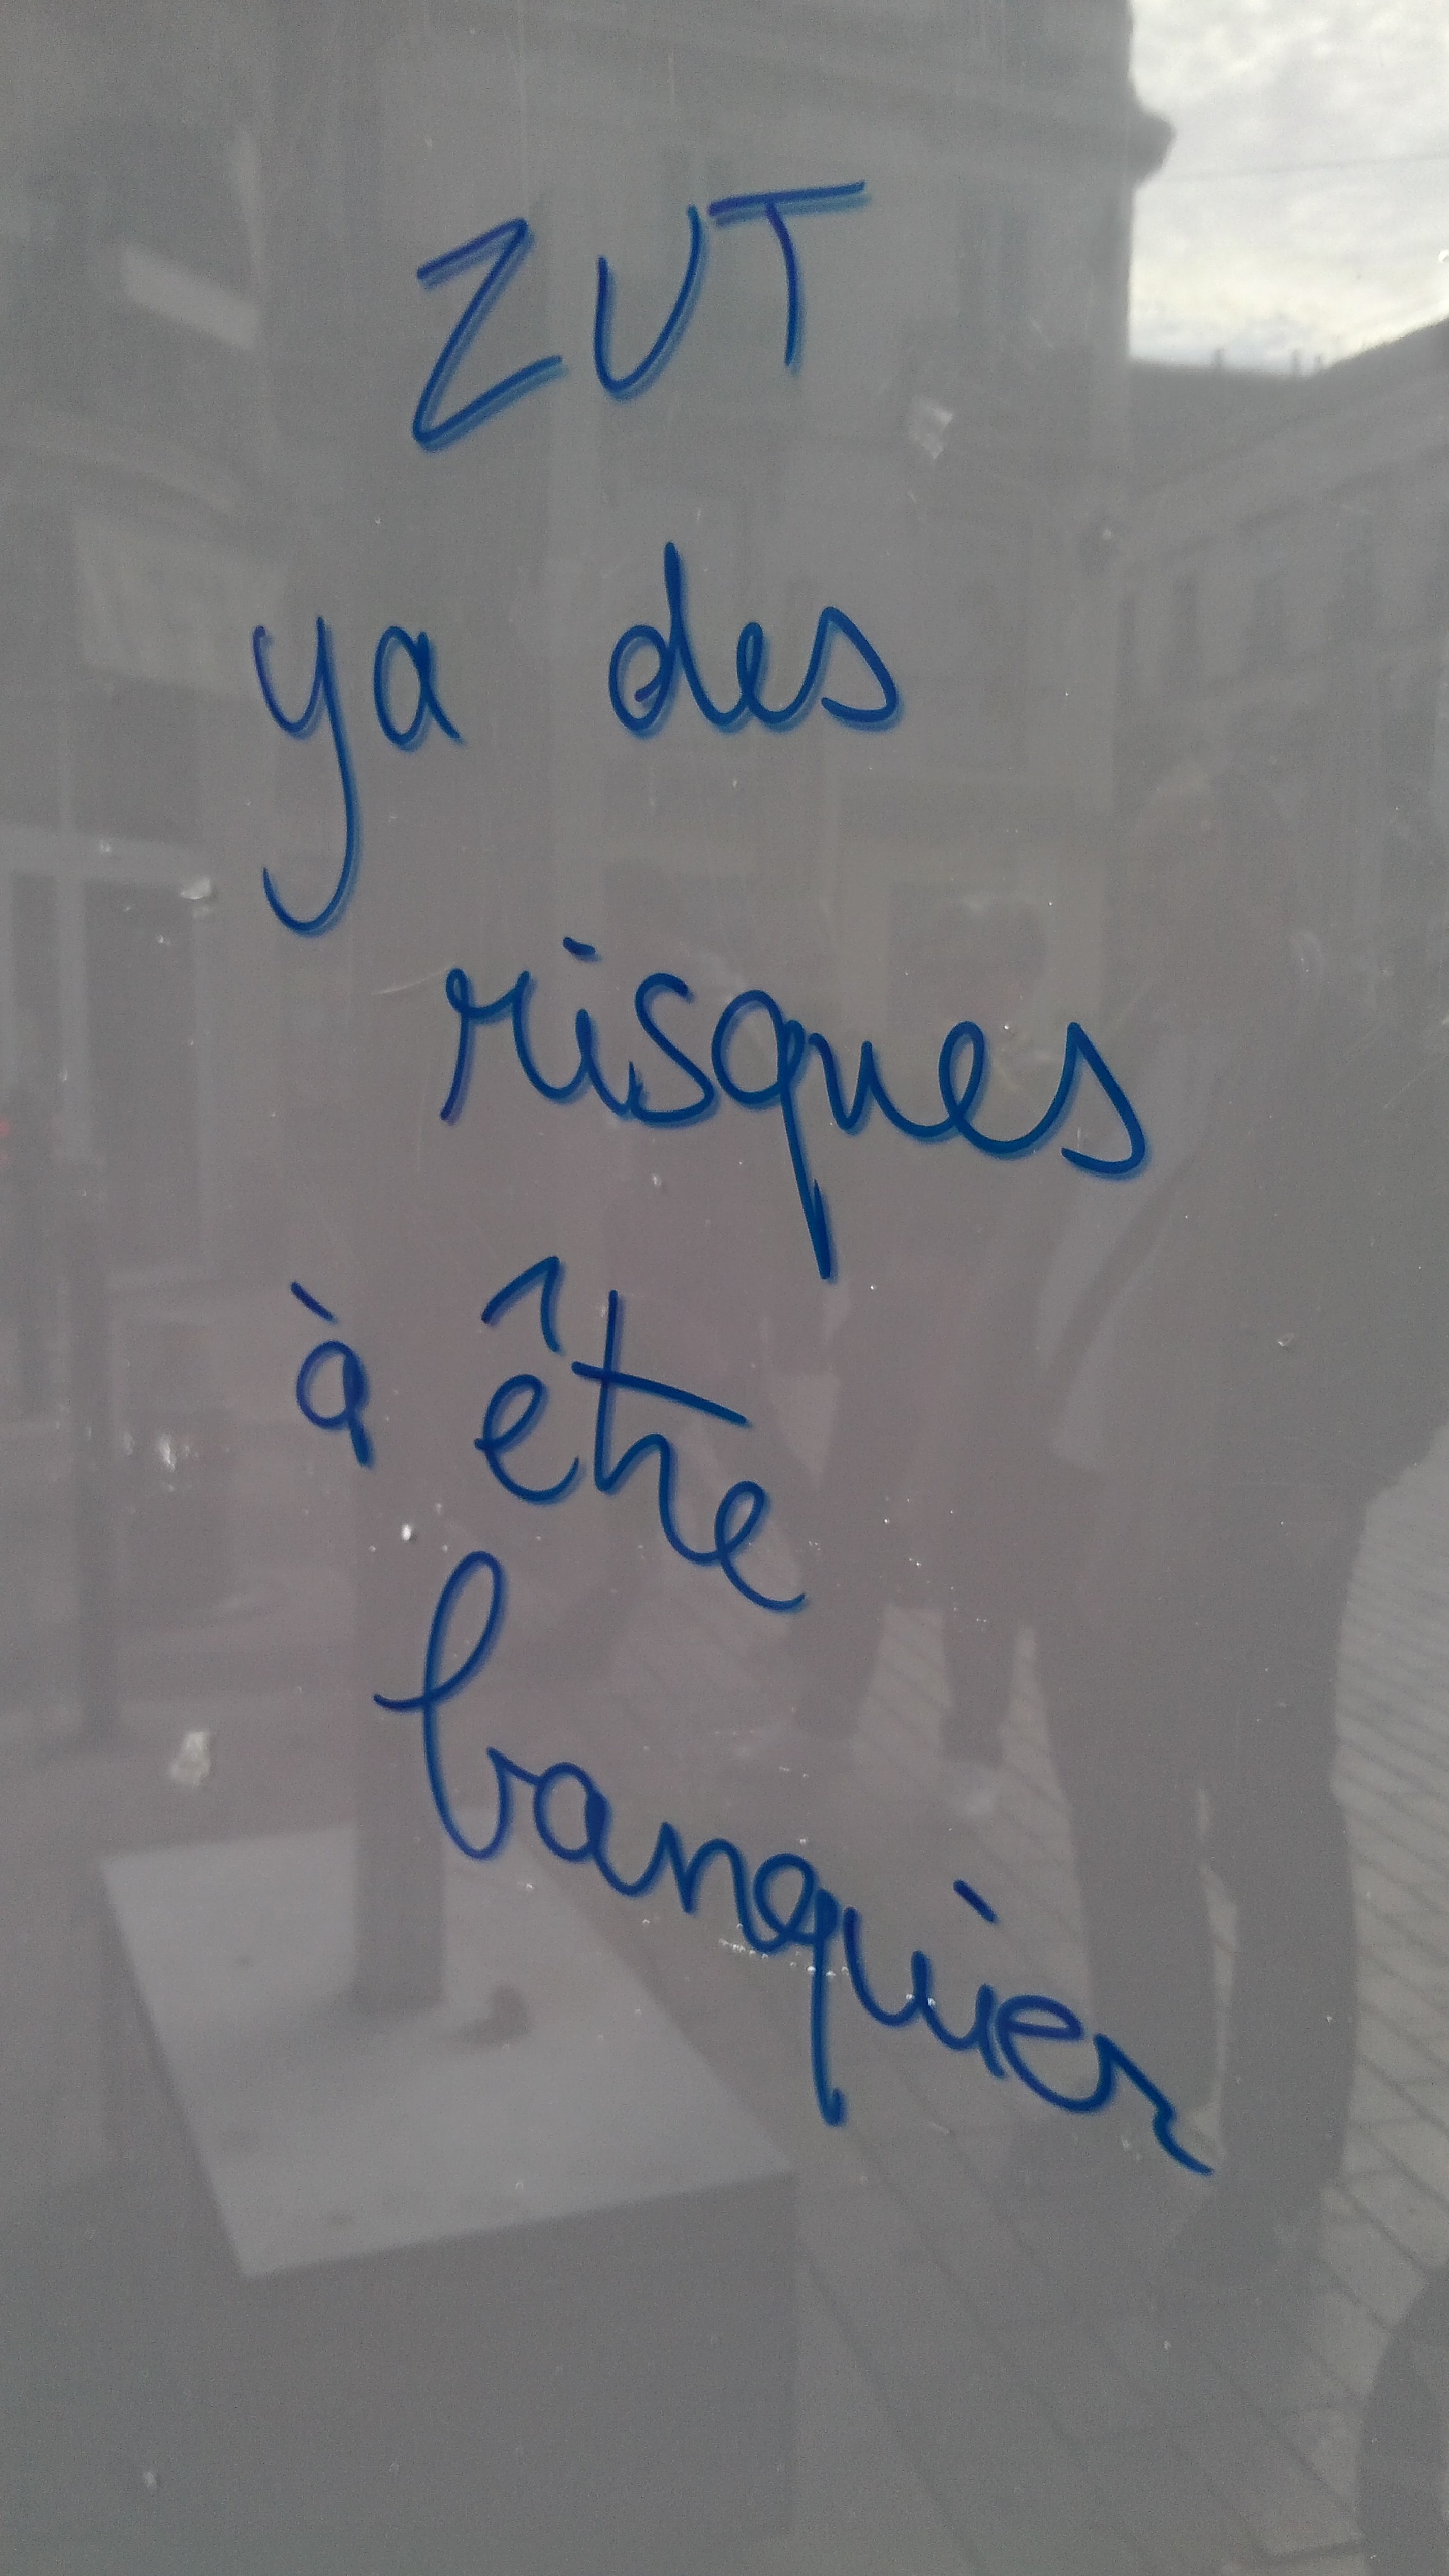 ZUT
ya des
risques
à être
banquier